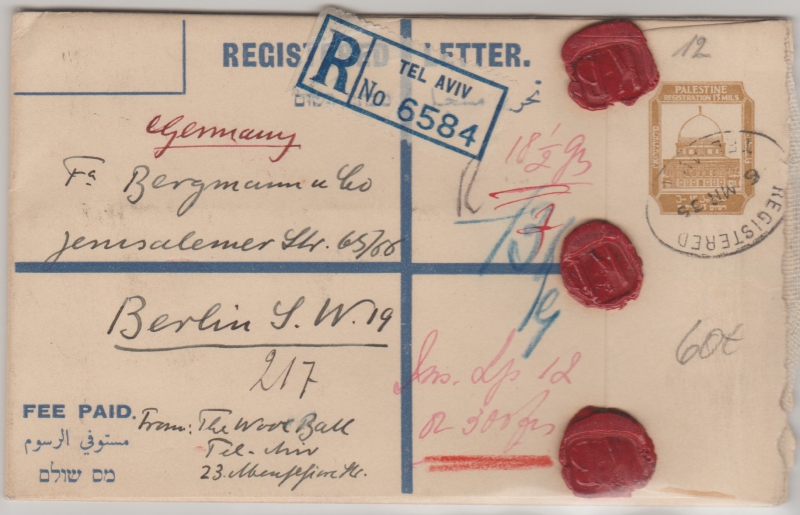 REGISTERED LETTER.
R
TEL AVIV
No 6584
12
PALESTINE
REGISTRATION 13 MILS
REGISTERED
6 MR 35
Germany
Fa Bergmann u Co
Jerusalemer Str. 65/66
Berlin S.W. 19
217
18 1/2 Gr
7
60t
Ins. Lp. 12
or 300 frs
FEE PAID.
مستوفي الرسوم
מס שולם
From: The Wool Ball
Tel-Aviv